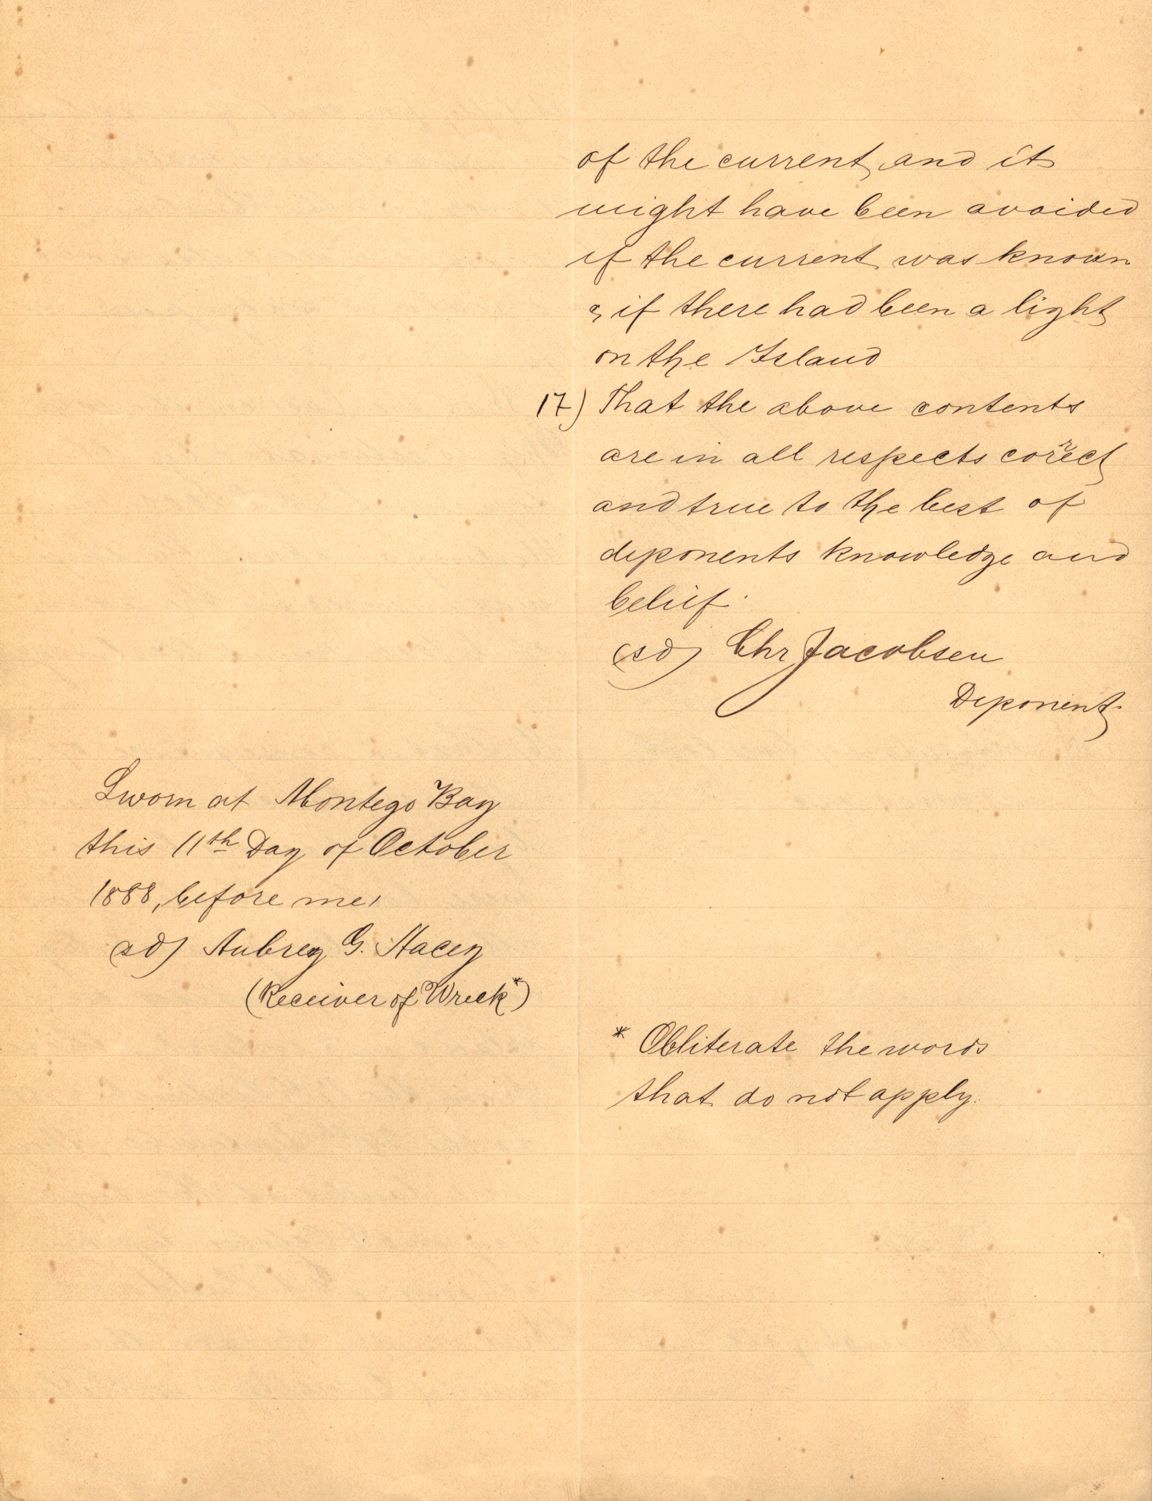 of the current, and it
might have been avoided
if the current was known
& if there had been a light
on the Island
17) That the above contents
are in all respects correct
and true to the best of
deponents knowledge and
belief.
(sd) Chr Jacobsen
Deponent.
Sworn at Montego Bay
this 11th Day of October
1888, before me,
(sd) Aubrey G. Stacey
(Receiver of Wreck*)
* Obliterate the words
that do not apply.